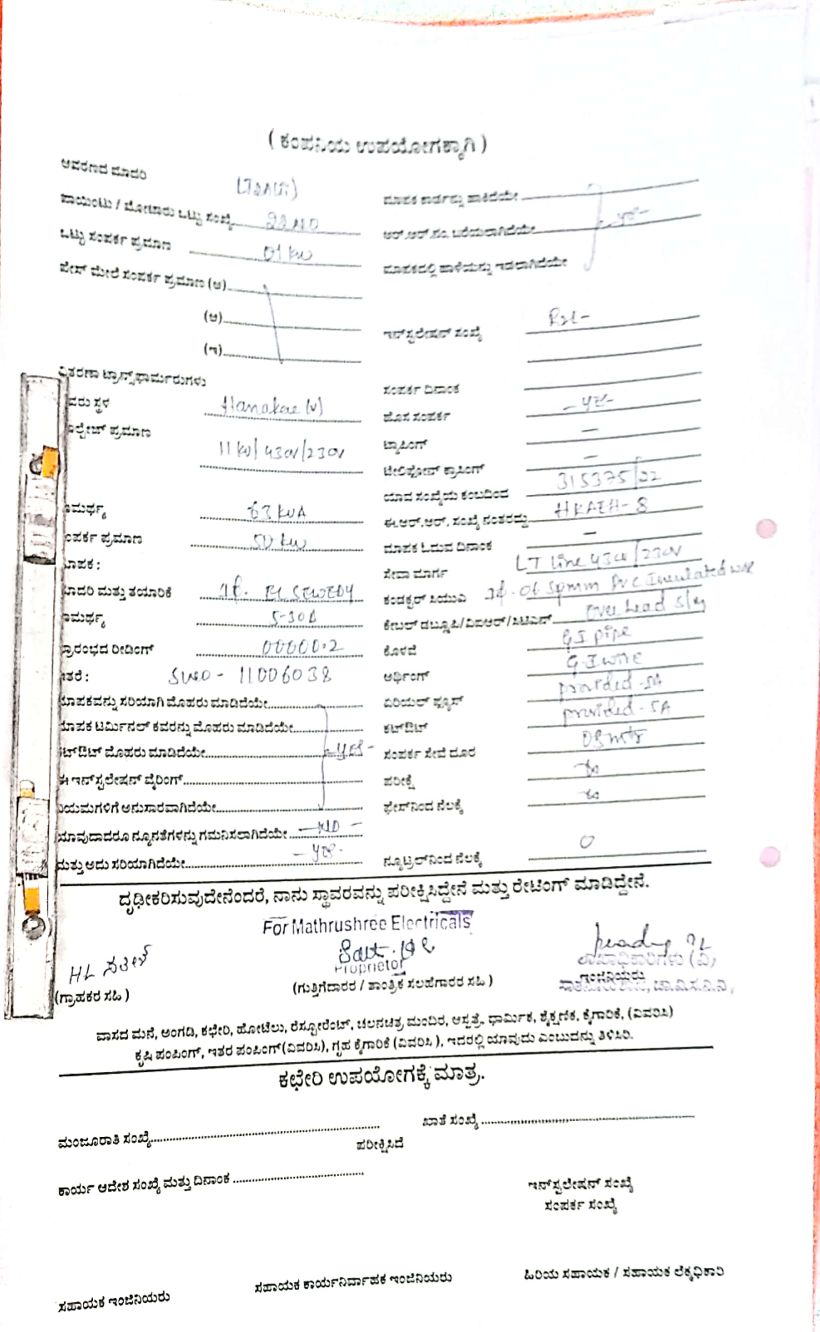 ( ಕಂಪನಿಯ ಉಪಯೋಗಕ್ಕಾಗಿ )
ಆವರಣದ ಮಾದರಿ
ಪಾಯಿಂಟು / ಮೋಟಾರು ಒಟ್ಟು ಸಂಖ್ಯೆ
ಒಟ್ಟು ಸಂಪರ್ಕ ಪ್ರಮಾಣ 01 kw
ಪೇಸ್ ಮೇಲೆ ಸಂಪರ್ಕ ಪ್ರಮಾಣ (ಅ)
(ಆ)
(ಇ)
ಮಾಪಕ ಕಾರ್ಡನ್ನು ಹಾಕಿದೆಯೇ
ಆರ್.ಆರ್.ನಂ. ಬರೆಯಲಾಗಿದೆಯೇ
ಮಾಪಕದಲ್ಲಿ ಹಾಳೆಯನ್ನು ಇಡಲಾಗಿದೆಯೇ
ಇನ್‌ಸ್ಟಲೇಷನ್ ಸಂಖ್ಯೆ
ವಿತರಣಾ ಟ್ರಾನ್ಸ್‌ಫಾರ್ಮರುಗಳು
ವರು ಸ್ಥಳ
ಲ್ಟೇಜ್ ಪ್ರಮಾಣ 11 kv/430v/230v
ಮರ್ಥ್ಯ 63 kVA
ಂಪರ್ಕ ಪ್ರಮಾಣ 50 kw
ಾಪಕ :
ಾದರಿ ಮತ್ತು ತಯಾರಿಕೆ EL SEWEDY
ಾಮರ್ಥ್ಯ 5-30A
್ರಾರಂಭದ ರೀಡಿಂಗ್ 00000.2
ತರೆ : SlNO - 11006038
ಾಪಕವನ್ನು ಸರಿಯಾಗಿ ಮೊಹರು ಮಾಡಿದೆಯೇ
ಾಪಕ ಟರ್ಮಿನಲ್ ಕವರನ್ನು ಮೊಹರು ಮಾಡಿದೆಯೇ
ಟ್‌ಔಟ್ ಮೊಹರು ಮಾಡಿದೆಯೇ - yes -
ಈ ಇನ್‌ಸ್ಟಲೇಷನ್ ವೈರಿಂಗ್
ಿಯಮಗಳಿಗೆ ಅನುಸಾರವಾಗಿದೆಯೇ
ಯಾವುದಾದರೂ ನ್ಯೂನತೆಗಳನ್ನು ಗಮನಿಸಲಾಗಿದೆಯೇ - NO -
ಮತ್ತು ಅದು ಸರಿಯಾಗಿದೆಯೇ - yes -
ಸಂಪರ್ಕ ದಿನಾಂಕ
ಹೊಸ ಸಂಪರ್ಕ - yes -
ಟ್ಯಾಪಿಂಗ್ -
ಟೆಲಿಫೋನ್ ಕ್ರಾಸಿಂಗ್ -
ಯಾವ ಸಂಖ್ಯೆಯ ಕಂಬದಿಂದ 315375/22
ಈ.ಆರ್.ಆರ್. ಸಂಖ್ಯೆ ನಂತರದ್ದು HKAEH-8
ಮಾಪಕ ಓದುವ ದಿನಾಂಕ -
ಸೇವಾ ಮಾರ್ಗ LT line 430/230V
ಕಂಡಕ್ಟರ್ ಸಿಯುಎ 06 sqmm PVC Insulated wire
ಕೇಬಲ್ ಡಬ್ಲ್ಯೂಪಿ/ವಿಐಆರ್/ಸಿಟಿಎನ್ over head
ಕೊಳವೆ GI pipe
ಆರ್ಥಿಂಗ್ G-I wire
ಏರಿಯಲ್ ಫ್ಯೂಸ್ provided - 5A
ಕಟ್‌ಔಟ್ provided - 5A
ಸಂಪರ್ಕ ಸೇವೆ ದೂರ
ಪರೀಕ್ಷೆ ∞
ಫೇಸ್‌ನಿಂದ ನೆಲಕ್ಕೆ ∞
ನ್ಯೂಟ್ರಲ್‌ನಿಂದ ನೆಲಕ್ಕೆ 0
ದೃಢೀಕರಿಸುವುದೇನೆಂದರೆ, ನಾನು ಸ್ಥಾವರವನ್ನು ಪರೀಕ್ಷಿಸಿದ್ದೇನೆ ಮತ್ತು ರೇಟಿಂಗ್ ಮಾಡಿದ್ದೇನೆ.
For Mathrushree Electricals
Proprietor
(ಗ್ರಾಹಕರ ಸಹಿ )
(ಗುತ್ತಿಗೆದಾರರ / ತಾಂತ್ರಿಕ ಸಲಹೆಗಾರರ ಸಹಿ )
ಶಾಖಾಧಿಕಾರಿಗಳು (ವಿ)
ಇಂಜಿನಿಯರು
ವಾಸದ ಮನೆ, ಅಂಗಡಿ, ಕಛೇರಿ, ಹೋಟೆಲು, ರೆಸ್ಟೋರೆಂಟ್, ಚಲನಚಿತ್ರ ಮಂದಿರ, ಆಸ್ಪತ್ರೆ, ಧಾರ್ಮಿಕ, ಶೈಕ್ಷಣಿಕ, ಕೈಗಾರಿಕೆ, (ವಿವರಿಸಿ)
ಕೃಷಿ ಪಂಪಿಂಗ್, ಇತರ ಪಂಪಿಂಗ್(ವಿವರಿಸಿ), ಗೃಹ ಕೈಗಾರಿಕೆ (ವಿವರಿಸಿ ), ಇದರಲ್ಲಿ ಯಾವುದು ಎಂಬುದನ್ನು ತಿಳಿಸಿರಿ.
ಕಛೇರಿ ಉಪಯೋಗಕ್ಕೆ ಮಾತ್ರ.
ಮಂಜೂರಾತಿ ಸಂಖ್ಯೆ
ಖಾತೆ ಸಂಖ್ಯೆ
ಪರೀಕ್ಷಿಸಿದೆ
ಕಾರ್ಯ ಆದೇಶ ಸಂಖ್ಯೆ ಮತ್ತು ದಿನಾಂಕ
ಇನ್‌ಸ್ಟಲೇಷನ್ ಸಂಖ್ಯೆ
ಸಂಪರ್ಕ ಸಂಖ್ಯೆ
ಸಹಾಯಕ ಇಂಜಿನಿಯರು
ಸಹಾಯಕ ಕಾರ್ಯನಿರ್ವಾಹಕ ಇಂಜಿನಿಯರು
ಹಿರಿಯ ಸಹಾಯಕ / ಸಹಾಯಕ ಲೆಕ್ಕಧಿಕಾರಿ